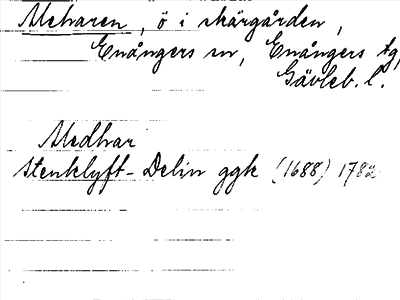 Meharen, ö i skärgården,
Enångers sn, Enångers tg,
Gävleb. l.
Medhar
Stenklyft- Delin ggk (1688) 1782